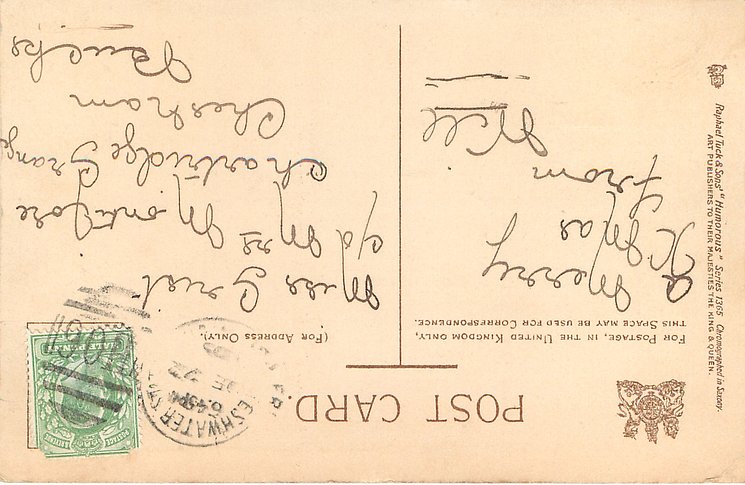 POST CARD.
FOR POSTAGE, IN THE UNITED KINGDOM ONLY,
THIS SPACE MAY BE USED FOR CORRESPONDENCE.
(FOR ADDRESS ONLY.)
Merry
X Mas
from
Will
Miss Grist
c/o Mrs Montefiore
Chartridge Grange
Chesham
Bucks
Raphael Tuck & Sons' "Humorous" Series 1365 Chromographed in Saxony.
ART PUBLISHERS TO THEIR MAJESTIES THE KING & QUEEN.
FRESHWATER
6.45PM
POSTAGE
HALFPENNY